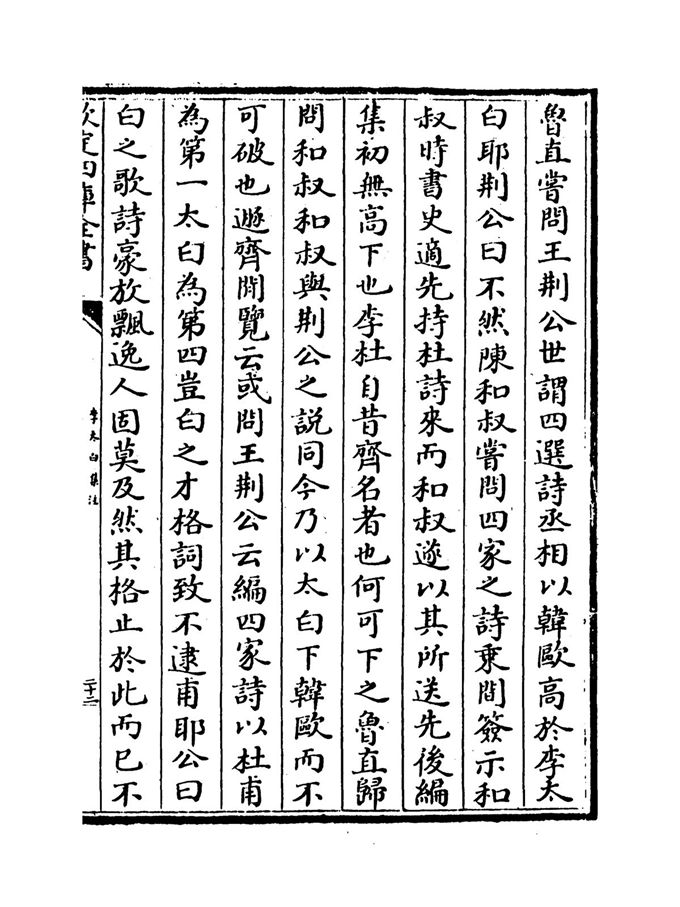 魯直嘗問王荆公世謂四選詩丞相以韓歐髙於李太
白耶荆公曰不然陳和叔嘗問四家之詩乗間簽示和
叔時書史適先持杜詩來而和叔遂以其所送先後編
集初無髙下也李杜自昔齊名者也何可下之魯直歸
問和叔和叔與荆公之説同今乃以太白下韓歐而不
可破也遯齊閒覽云或問王荆公云編四家詩以杜甫
為第一太白為第四豈白之才格詞致不逮甫耶公曰
白之歌詩豪放飄逸人固莫及然其格止於此而已不
欽定四庫全書
李太白集注
二十三